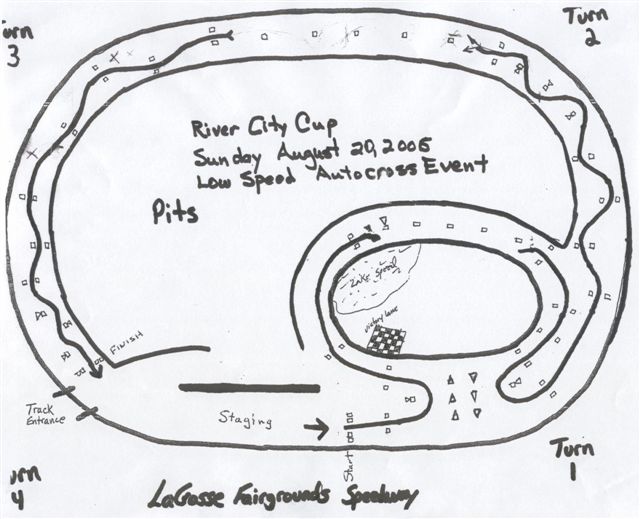 Turn
2
urn
3
River City Cup
Sunday August 20, 2006
Low Speed Autocross Event
Pits
Lake Speed
Victory Lane
FINISH
Track
Entrance
Staging
Start
Turn
1
urn
4
LaCrosse Fairgrounds Speedway